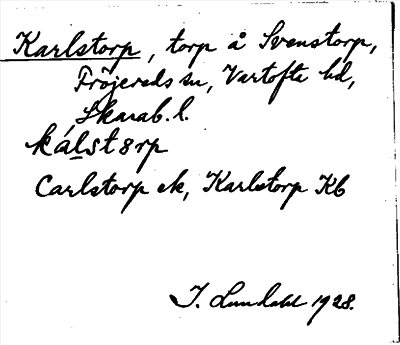 Karlstorp, torp å Svenstorp,
Fröjereds sn, Vartofta hd,
Skarab. l.
kálstərp
Carlstorp ek, Karlstorp Kb
I. Lundahl 1928.